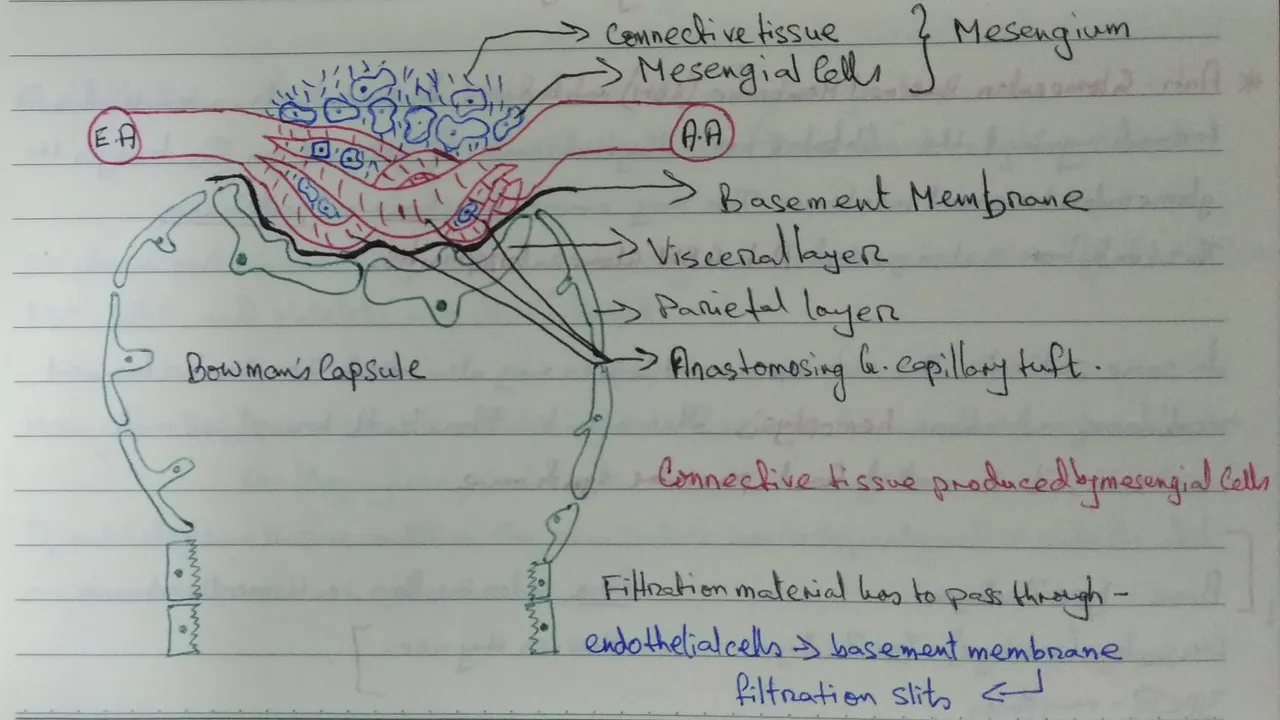 Connective tissue } Mesengium
Mesengial Cells
E.A
A.A
Basement Membrane
Visceral layer
Parietal layer
Bowman's Capsule
Anastomosing G. capillary tuft.
Connective tissue produced by mesengial Cells
Filtration material has to pass through -
endothelial cells → basement membrane
filtration slits ←